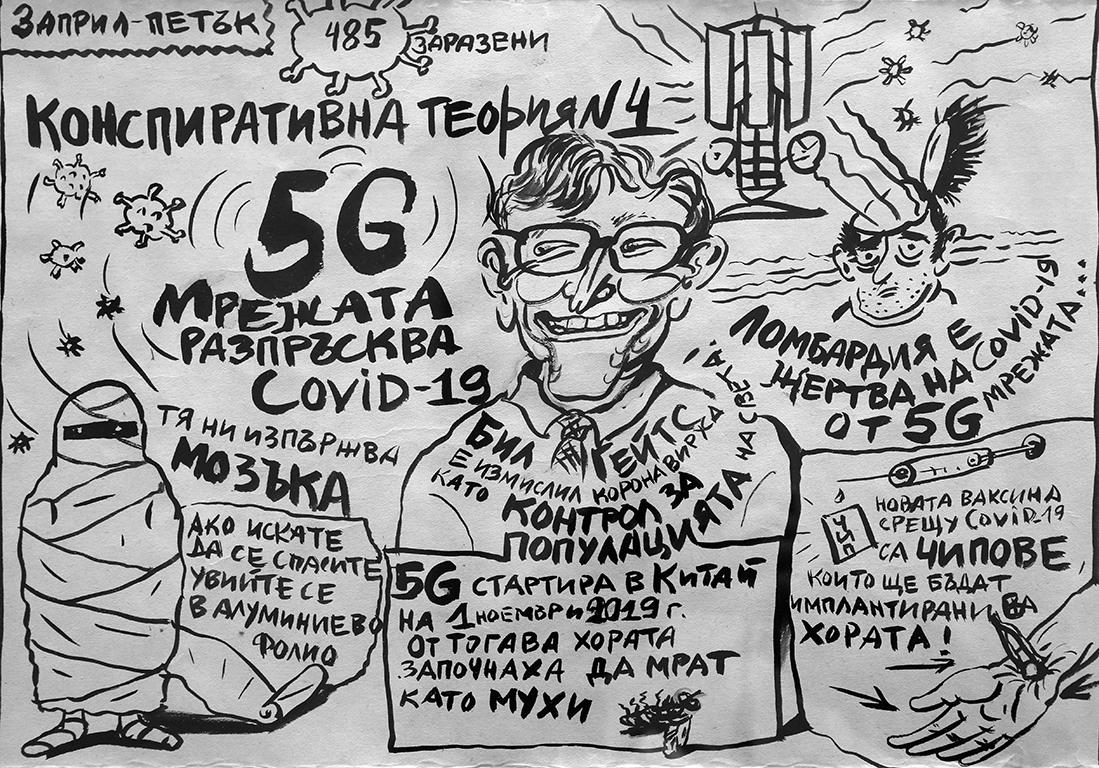 3АПРИЛ-ПЕТЪК
485
ЗАРАЗЕНИ
КОНСПИРАТИВНА ТЕОРИЯ N4
5G
МРЕЖАТА
РАЗПРЪСКВА
COViD-19
ТЯ НИ ИЗПЪРЖВА
МОЗЪКА
АКО ИСКАТЕ
ДА СЕ СПАСИТЕ
УВИЙТЕ СЕ
В АЛУМИНИЕВО
ФОЛИО
БИЛ ГЕЙТС
Е ИЗМИСЛИЛ КОРОНАВИРУСА
КАТО
КОНТРОЛ ЗА
ПОПУЛАЦИЯТА
НА СВЕТА.
5G СТАРТИРА В КИТАЙ
НА 1 НОЕМВРИ 2019 г.
ОТТОГАВА ХОРАТА
ЗАПОЧНАХА ДА МРАТ
КАТО МУХИ
ЛОМБАРДИЯ Е
ЖЕРТВА НА COViD-19
ОТ 5G МРЕЖАТА...
НОВАТА ВАКСИНА
СРЕЩУ COViD-19
СА ЧИПОВЕ
КОИТО ЩЕ БЪДАТ
ИМПЛАНТИРАНИ В
ХОРАТА!
ЧИП